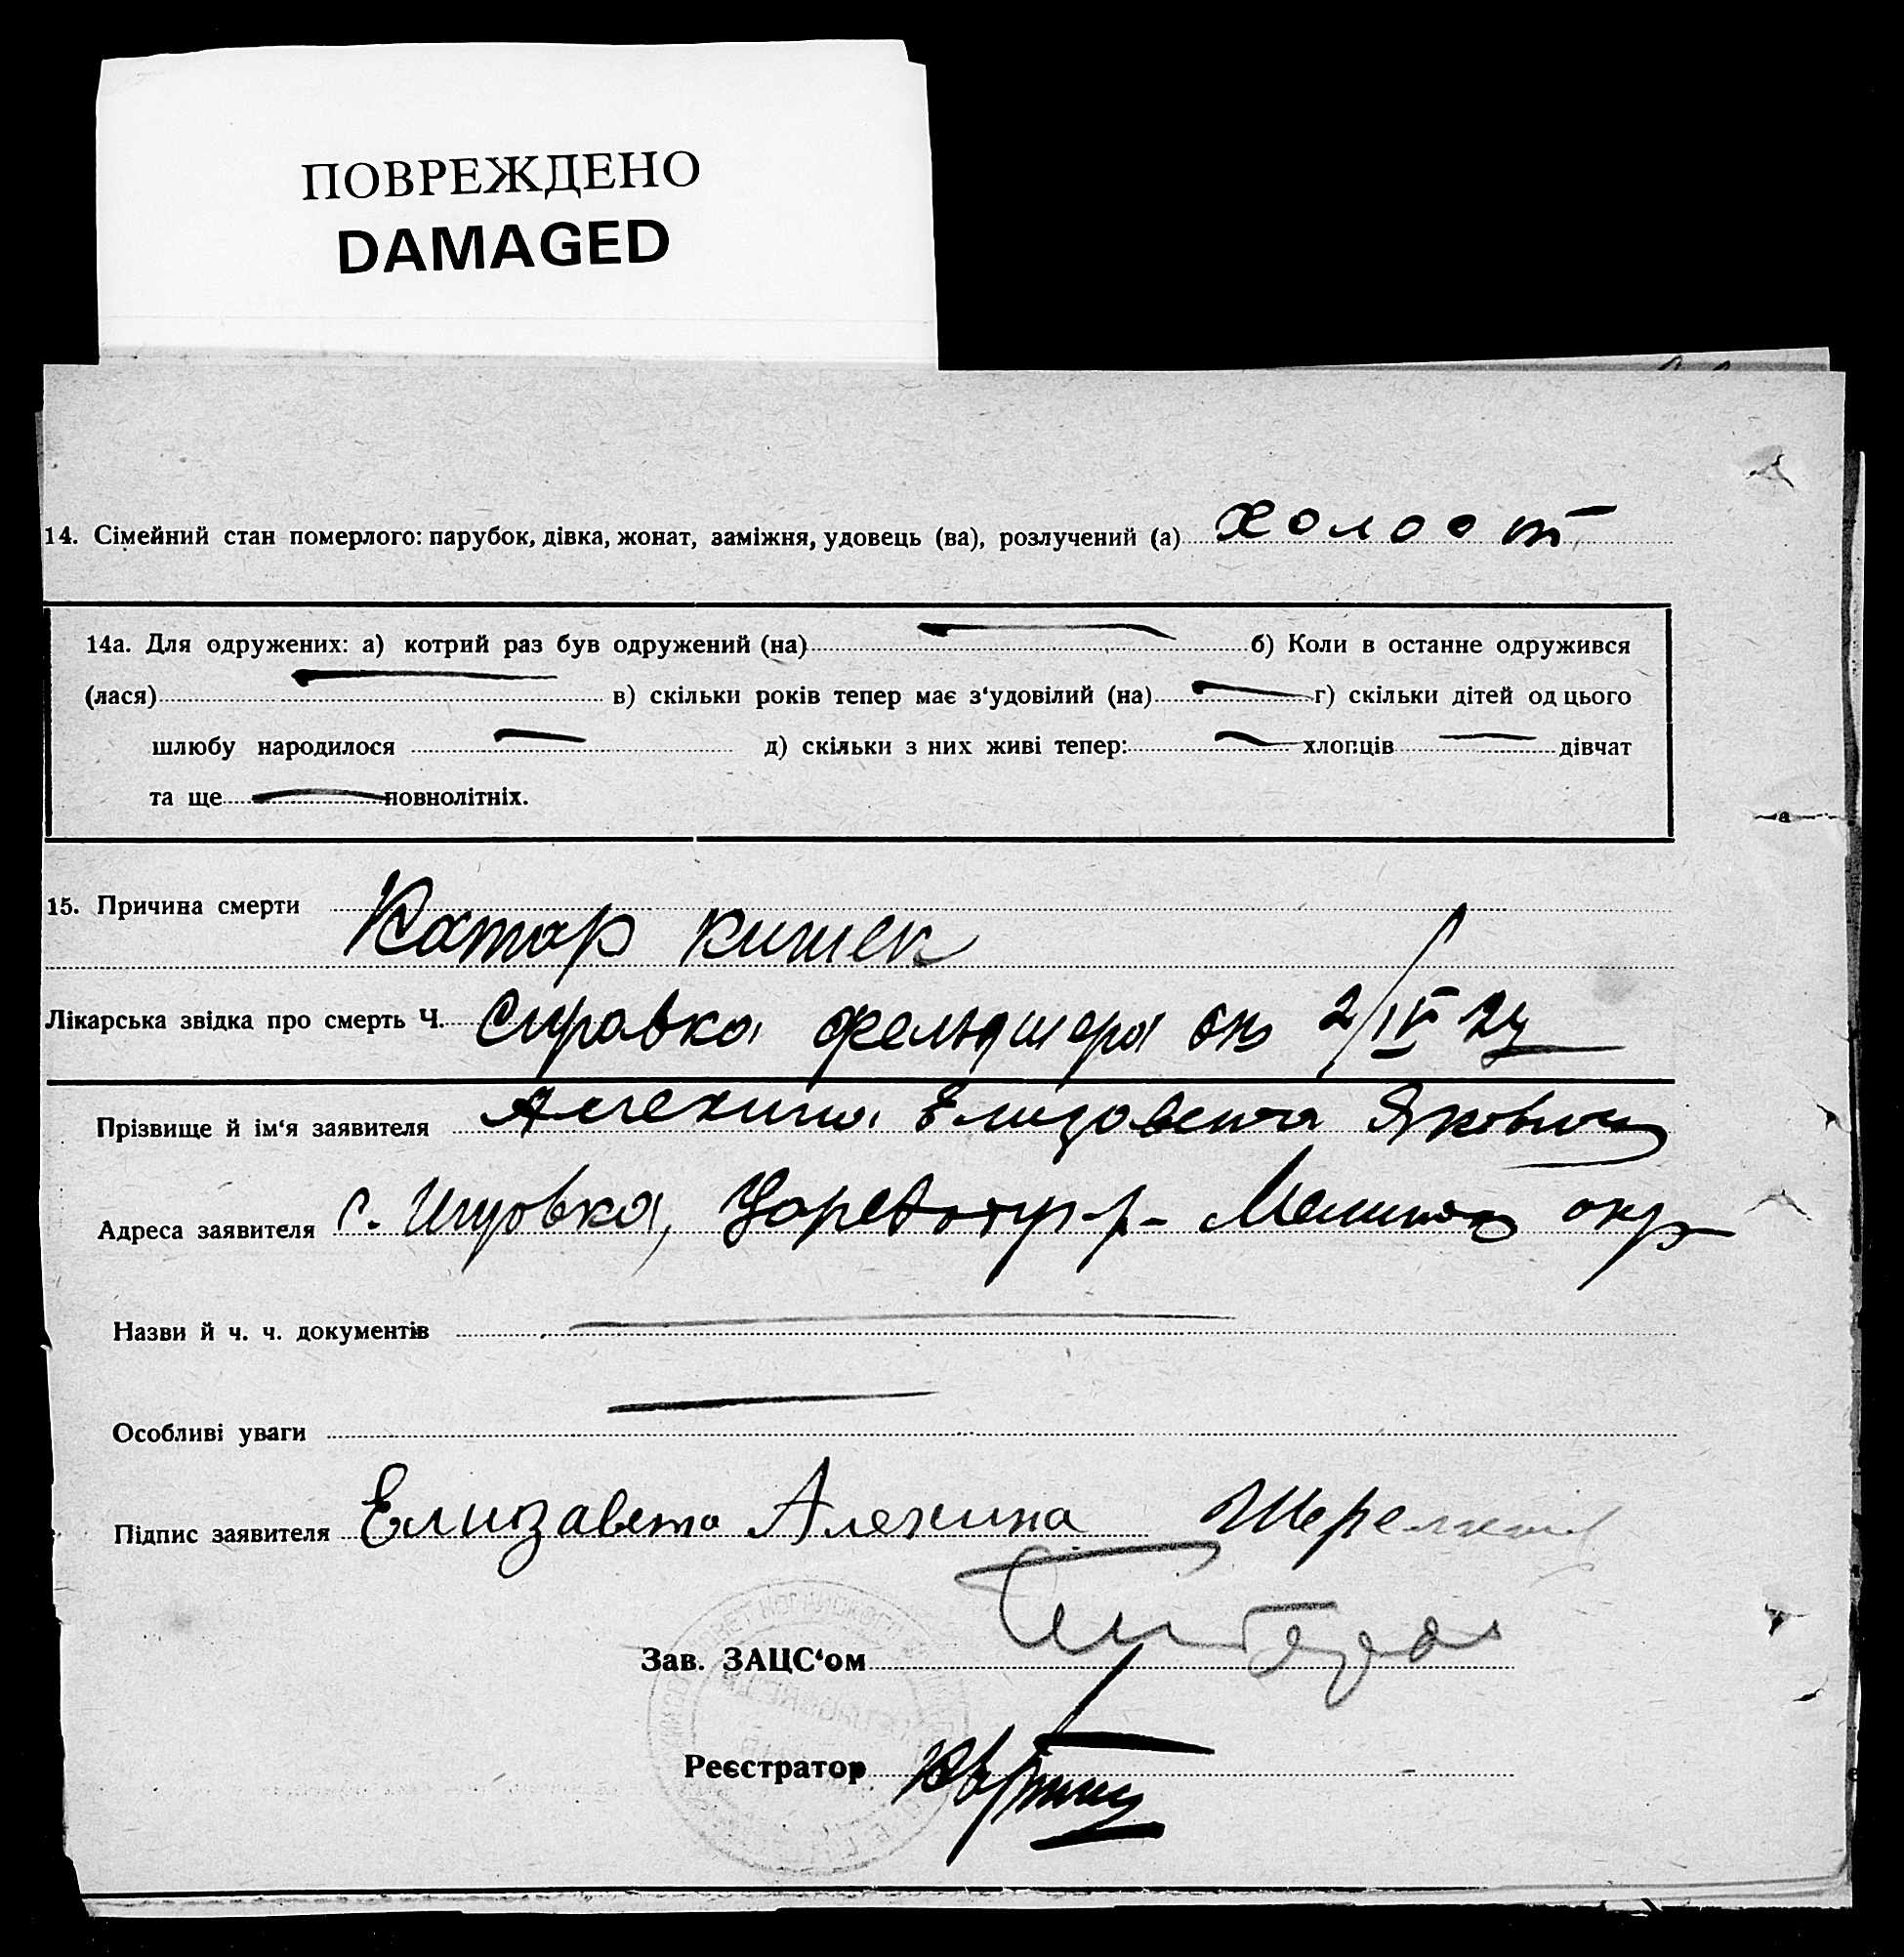 ПОВРЕЖДЕНО
DAMAGED
14. Сімейний стан померлого: парубок, дівка, жонат, заміжня, удовець (ва), розлучений (а) холост
14а. Для одружених: а) котрий раз був одружений (на) б) Коли в останне одружився
(лася) в) скільки років тепер має з‘удовілий (на) г) скільки дітей од цього
шлюбу народилося д) скільки з них живі тепер: хлопців дівчат
та ще повнолітніх.
15. Причина смерти
Катар кишек
Лікарська звідка про смерть Ч. Справка фельдшера от 2/IV
Прізвище й ім‘я заявителя Алехина Елизавета
Адреса заявителя с. окр
Назви й ч. ч. документів
Особливі уваги
Підпис заявителя Елизавета Алехина
Зав. ЗАЦС‘ом
Реєстратор